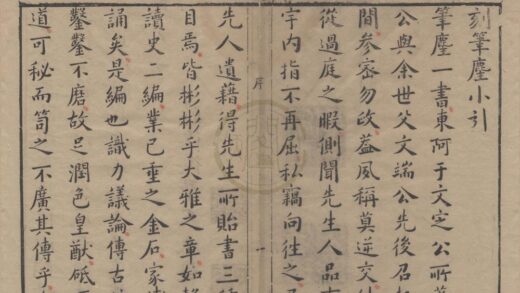 刻筆塵小引
筆塵一書東阿于文定公所著
公與余世父文端公先後召
間參密勿政益夙稱莫逆交
從過庭之暇側聞先生人品
宇內指不再屈私竊向往之
序
一
先人遺籍得先生所貽書三
目焉皆彬彬乎大雅之章如
讀史二編業已重之金石家
誦矣是編也識力議論傳古
鑿鑿不磨故足潤色皇猷砥
道可秘而笥之不廣其傳乎